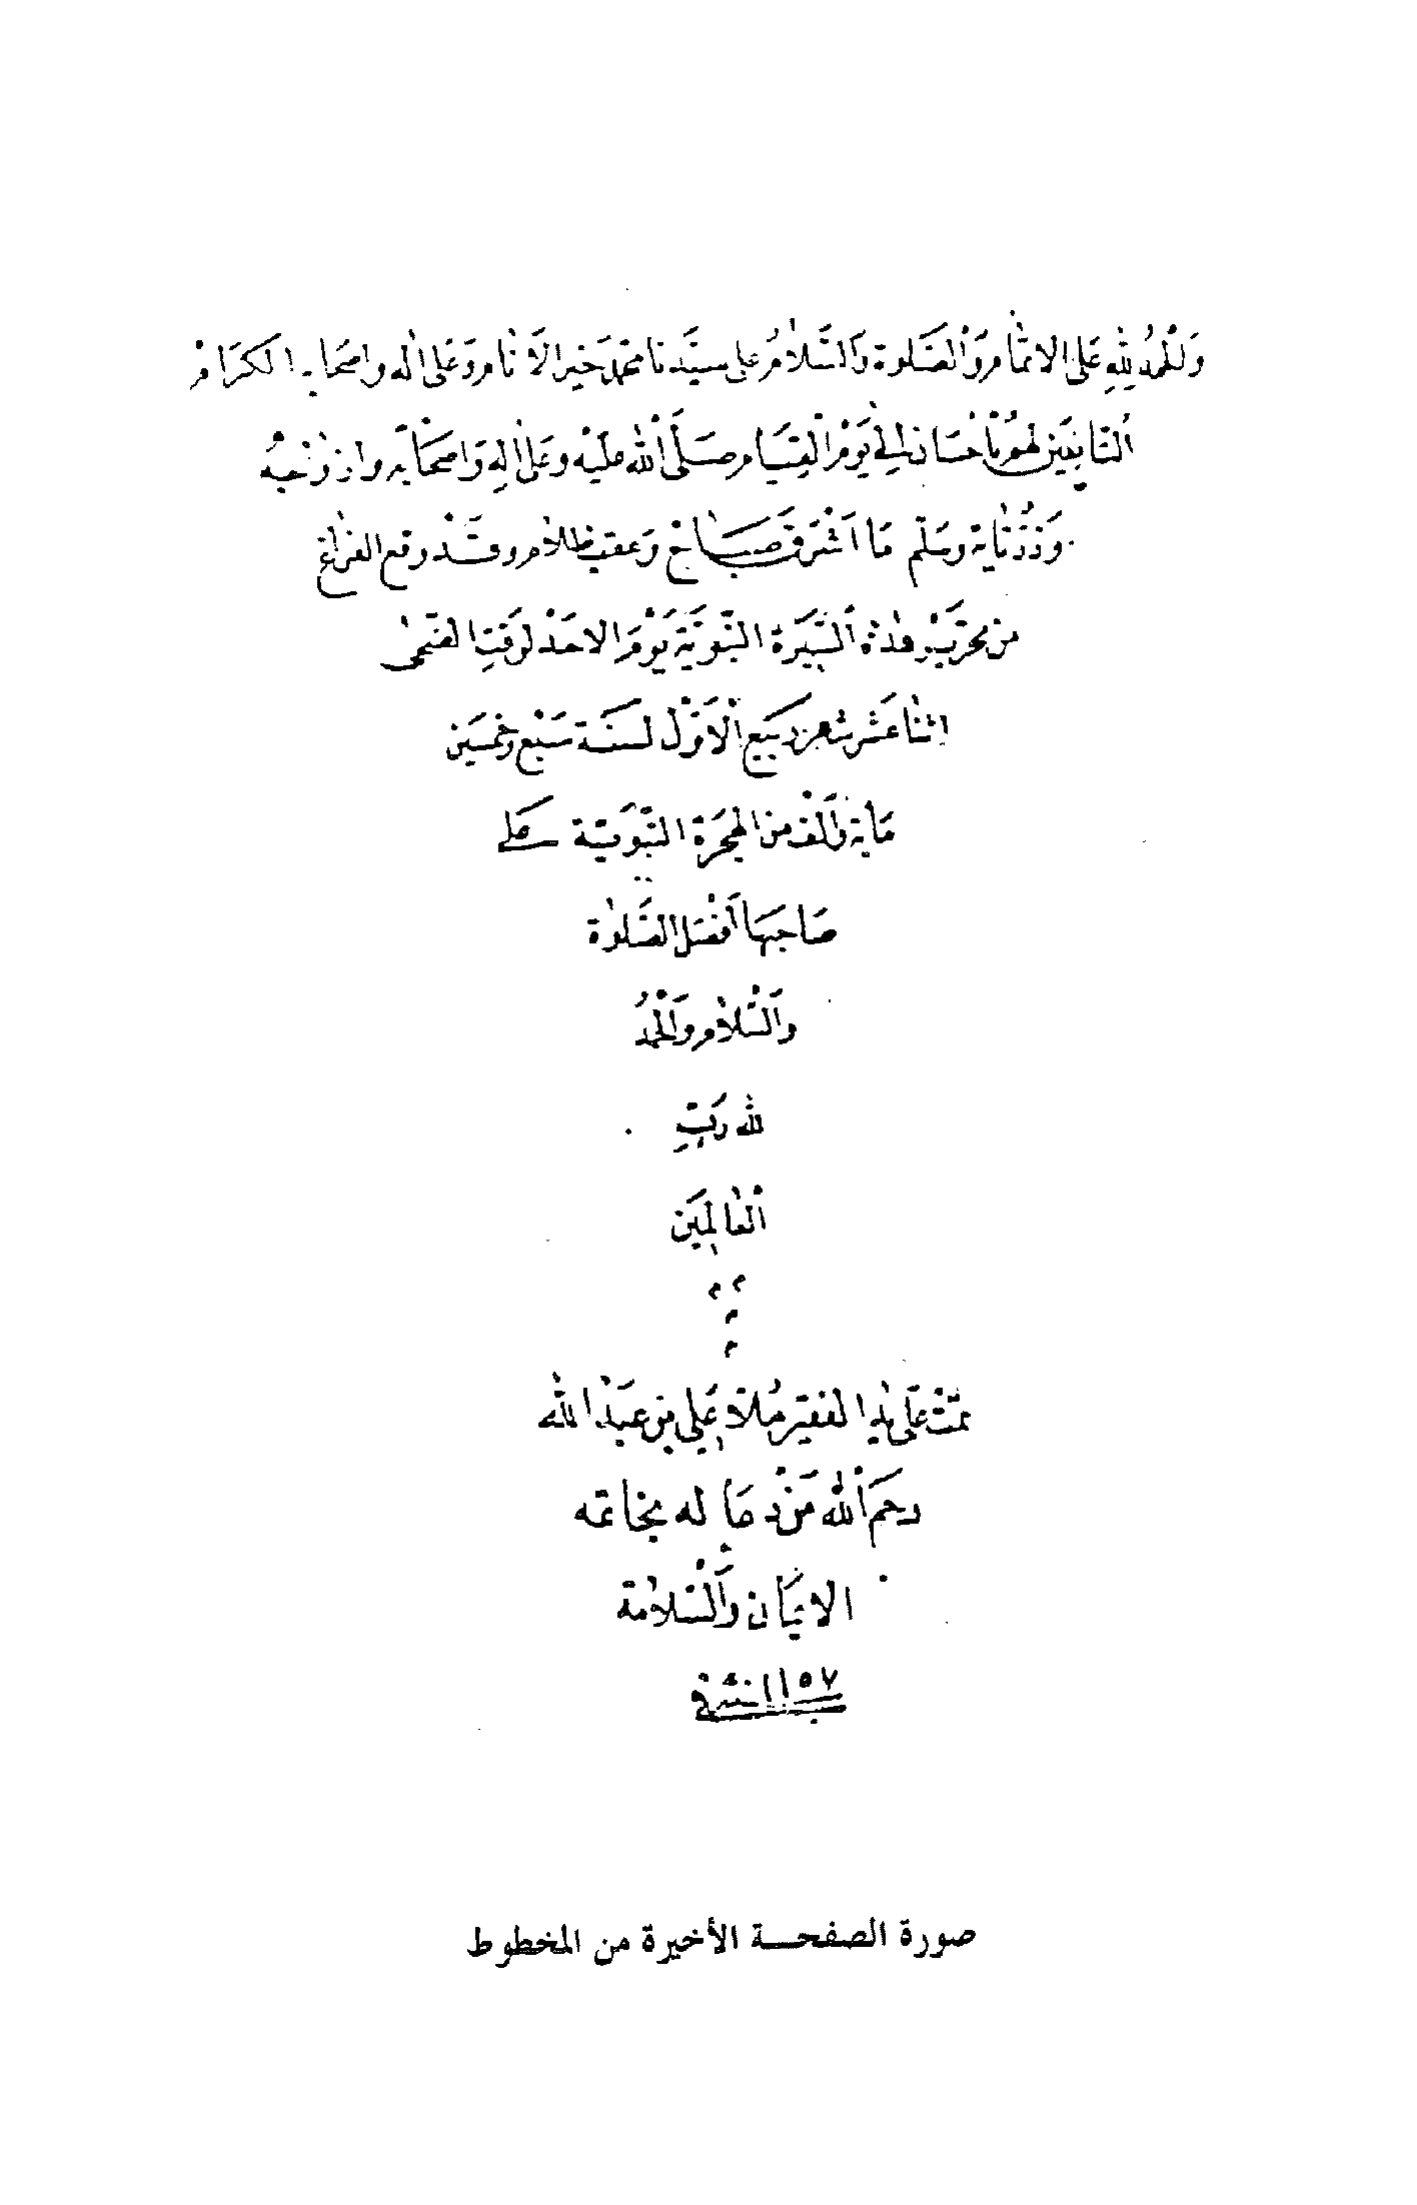 وَلْحَمْدُ لِلّٰهِ عَلَى الاتمام وَالصَّلوة وَالسَّلَامُ على سيّدنا محمّد خير الانام وَعَلٰى اٰله واصحابه الكرام
التابعين لهم باحسان الي يَوْمِ الْقِيَام صَلَّى اللّٰه عليْه وعلى اٰلِهِ وَاصحَابه وازواجه
وَذُرّيَّاته وسلم مَا اَشْرَقَ صَبَاحْ وعقبه ظلام وقد وقع الفراغ
من تحرير هٰذه السِّيَرة النَّبَوية يَوْم الاحد لوقت الضحى
اثنا عشر شهر ربيع الْاَوّل لسنة سبع وخمسين
ماية وَالف من الهجرة النَّبَوية على
صَاحبها اَفضل الصَّلٰوة
وَالسَّلام وَالْحَمْدُ
لله رَبِّ
الْعَالَمِيَن
تمّتْ عَلٰى يد الفقير مُلا عَلِي بن عبد الله
رحم الله مَنْ دعَا له بخاتمه
الايمَان وَالسَّلامة
في سنة ١١٥٧
صورة الصفحة الأخيرة من المخطوط